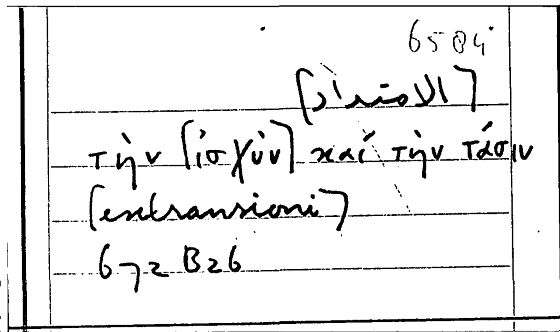 6504
[الامتداد]
τὴν [ἰσχὺν] καὶ τὴν τάσιν
[extransioni]
672 B26